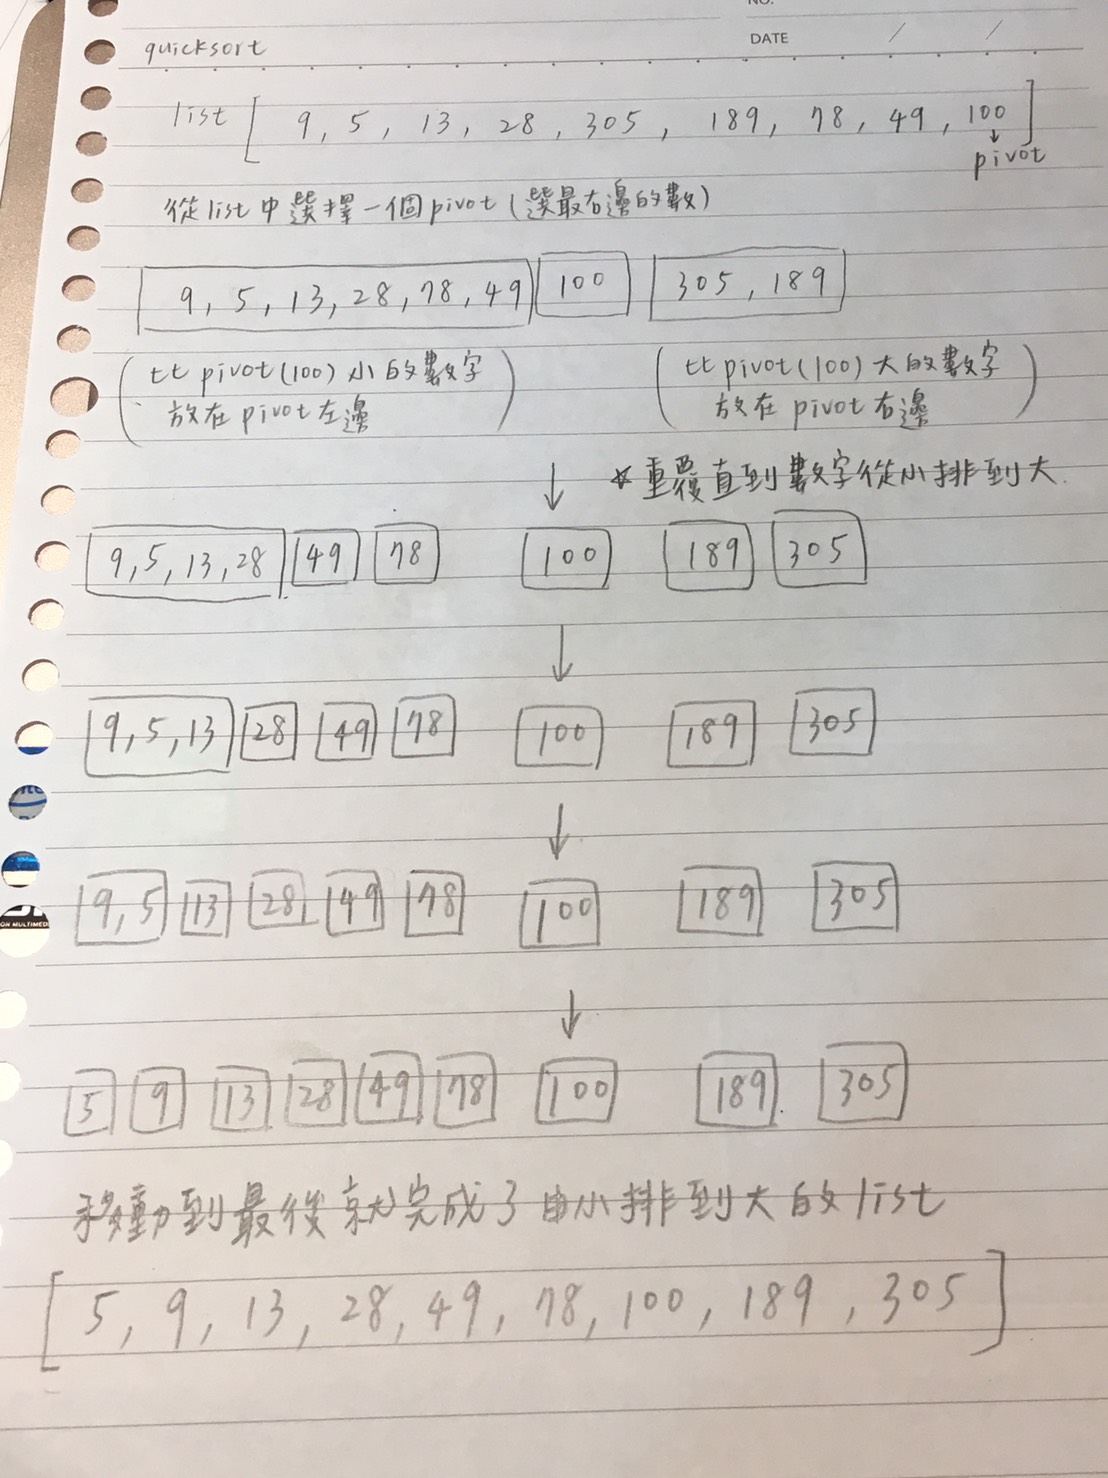 NO.
quicksort
DATE / /
list [ 9, 5, 13, 28, 305, 189, 78, 49, 100 ]
↓
pivot
從list中選擇一個pivot(選最右邊的數)
9, 5, 13, 28, 78, 49 100 305, 189
(比pivot(100)小的數字
放在pivot左邊)
(比pivot(100)大的數字
放在pivot右邊)
↓ *重覆直到數字從小排到大.
9, 5, 13, 28 49 78 100 189 305
↓
9, 5, 13 28 49 78 100 189 305
↓
9, 5 13 28 49 78 100 189 305
↓
5 9 13 28 49 78 100 189 305
移動到最後就完成了由小排到大的list
[ 5, 9, 13, 28, 49, 78, 100, 189, 305 ]